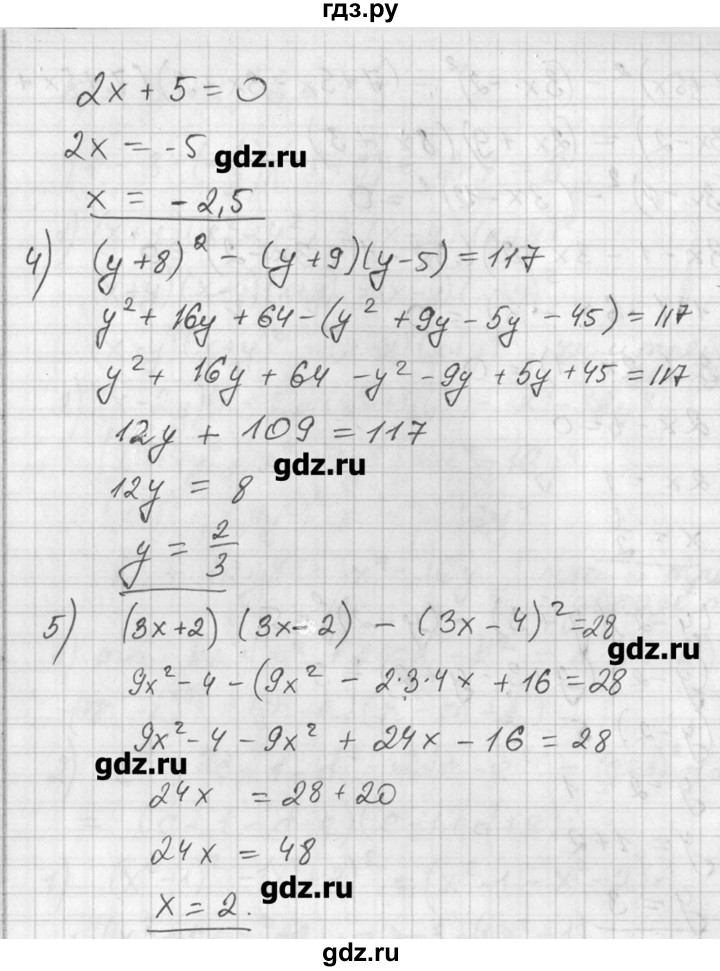 гдз.ру
2x + 5 = 0
2x = -5
gdz.ru
x = -2,5
4) (y+8)² - (y+9)(y-5) = 117
y² + 16y + 64 - (y² + 9y - 5y - 45) = 117
y² + 16y + 64 - y² - 9y + 5y + 45 = 117
12y + 109 = 117
gdz.ru
12y = 8
y = 2/3
5) (3x+2)(3x-2) - (3x-4)² = 28
gdz.ru
9x² - 4 - (9x² - 2·3·4x + 16 = 28
9x² - 4 - 9x² + 24x - 16 = 28
gdz.ru
24x = 28 + 20
24x = 48
gdz.ru
x = 2.
gdz.ru